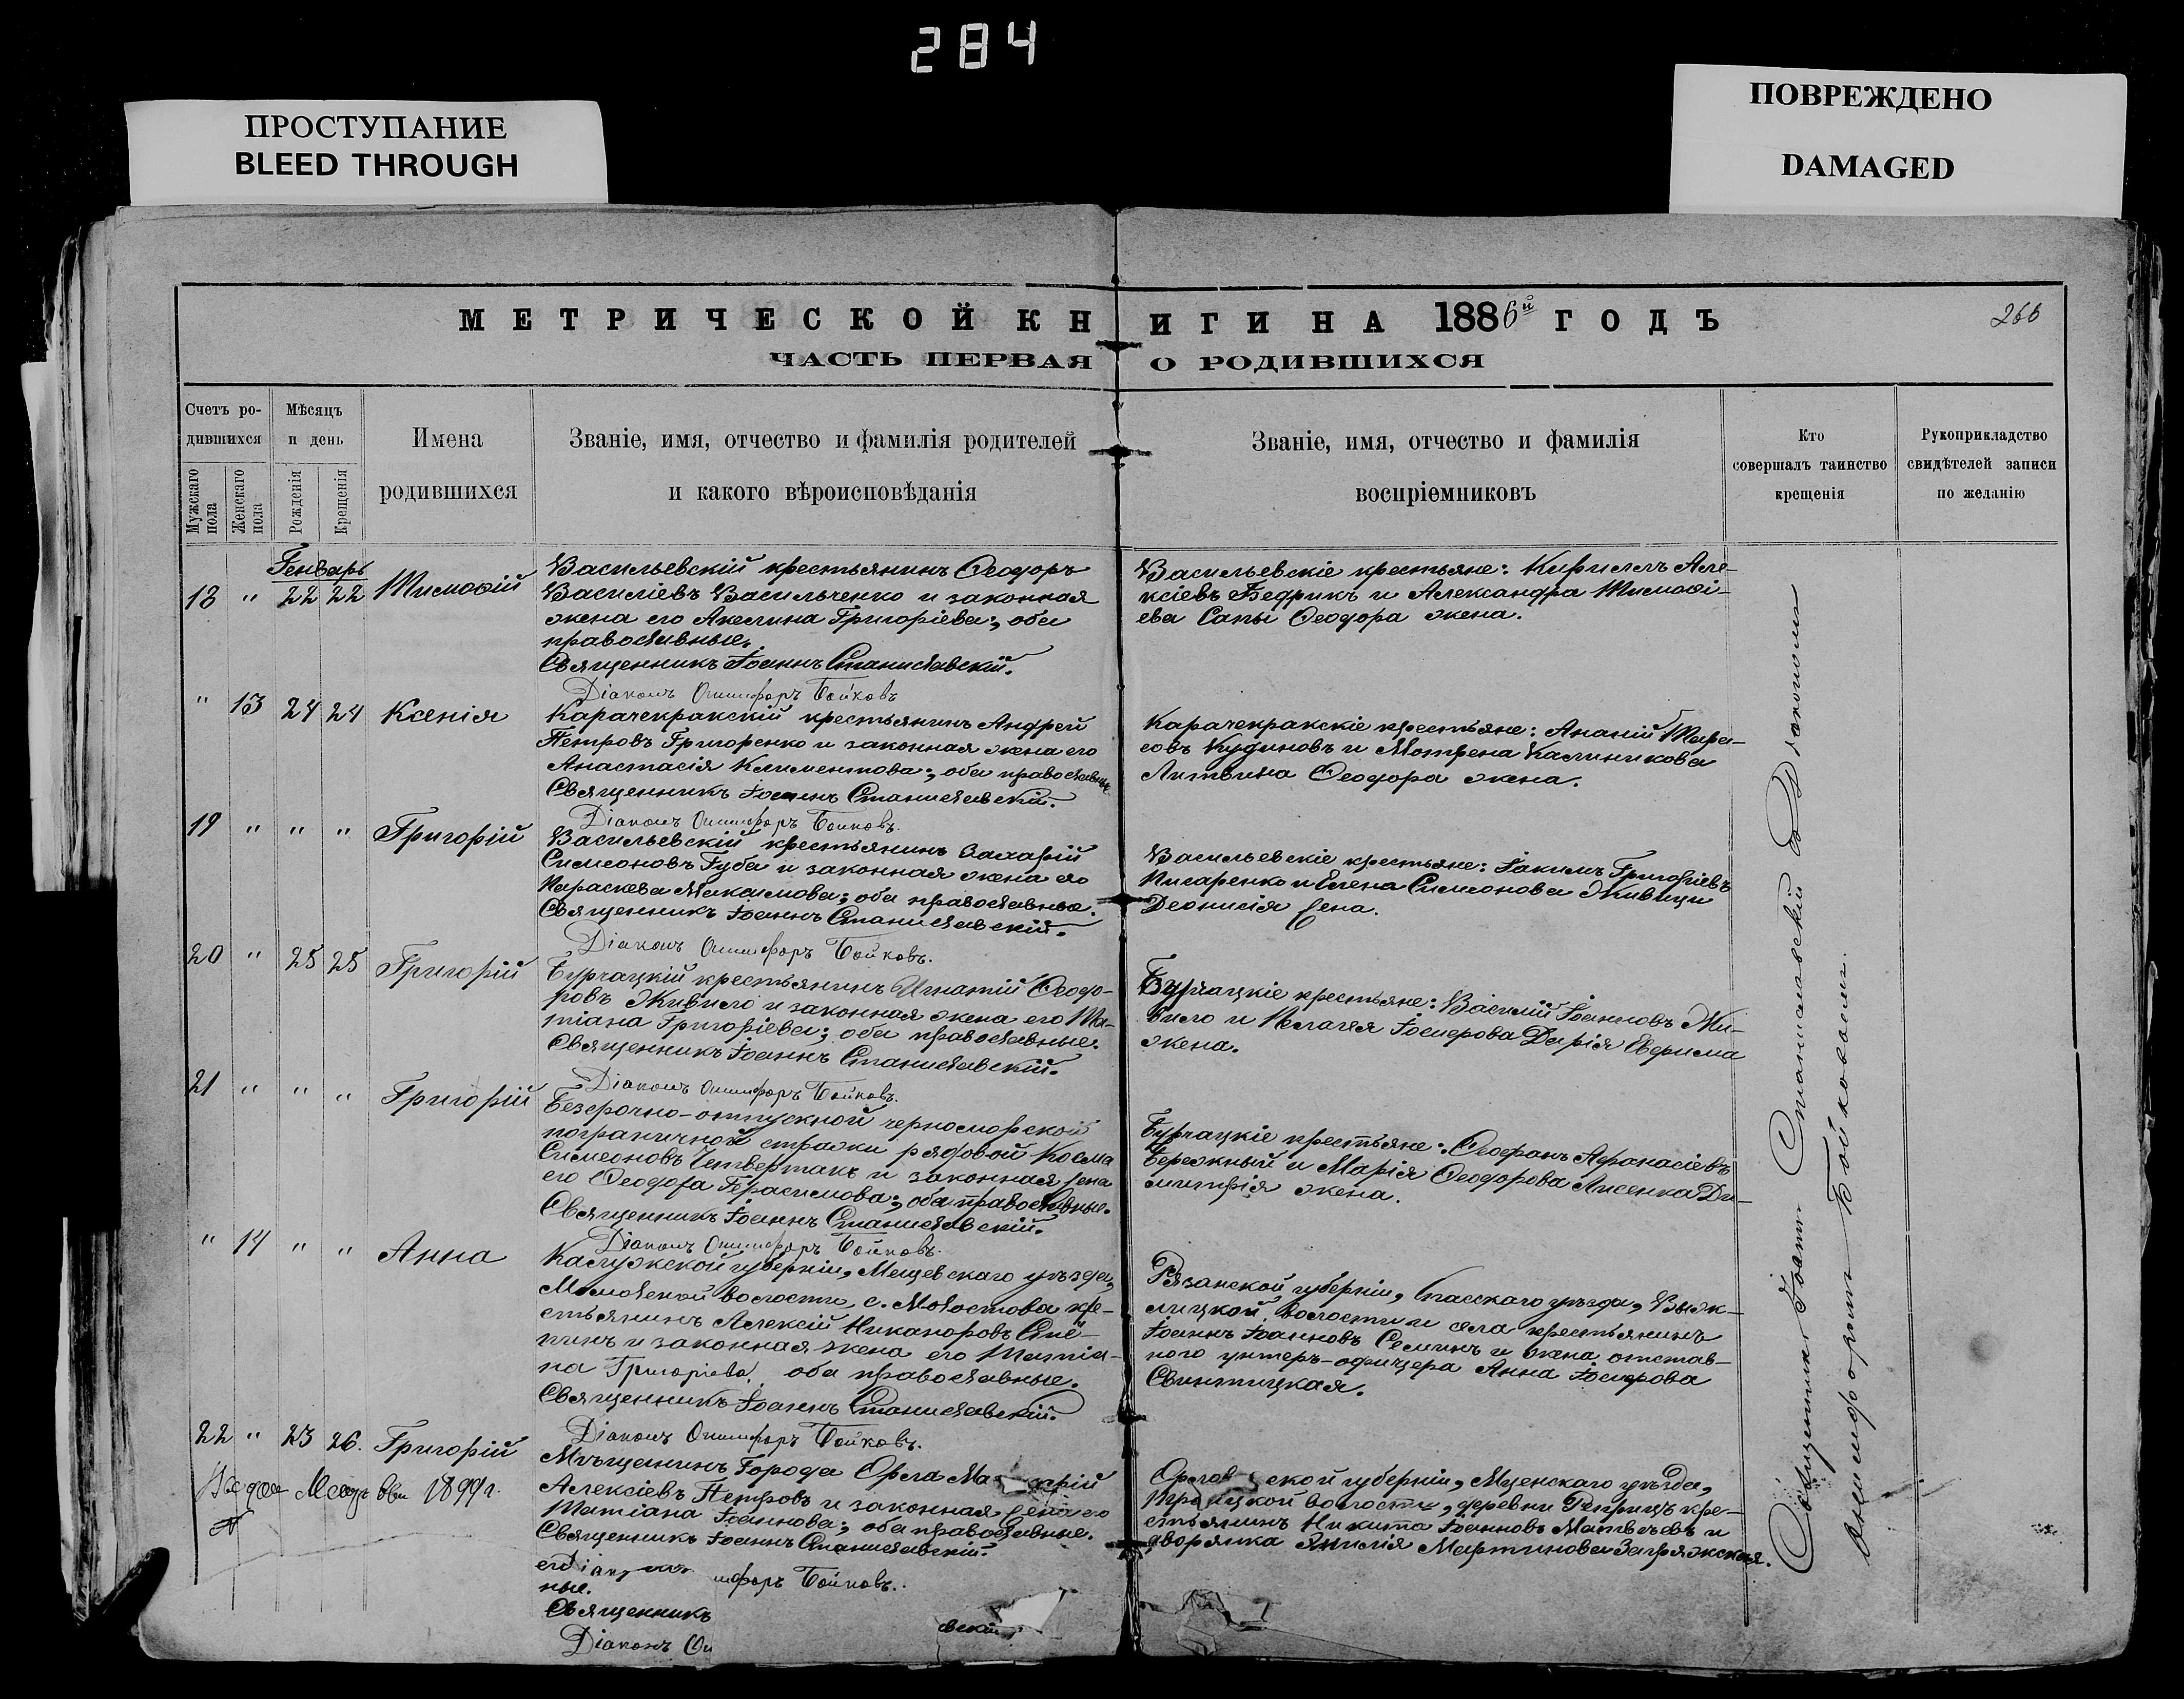 284
ПРОСТУПАНИЕ
BLEED THROUGH
ПОВРЕЖДЕНО
DAMAGED
МЕТРИЧЕСКОЙ КНИГИ НА 1886й ГОДЪ
266
ЧАСТЬ ПЕРВАЯ О РОДИВШИХСЯ
Счетъ ро-
дившихся
Мужскаго пола
Женскаго пола
Мѣсяцъ
и день
Рожденія
Крещенія
Имена
родившихся
Званіе, имя, отчество и фамилія родителей
и какого вѣроисповѣданія
Званіе, имя, отчество и фамилія
воспріемниковъ
Кто
совершалъ таинство
крещенія
Рукоприкладство
свидѣтелей записи
по желанію
Генварь
18 " 22 22 Тимоѳій
Васильевскій крестьянинъ Ѳеодоръ
Василіевъ Васильченко и законная
жена его Акелина Григоріева; оба
православные.
Священникъ Іоаннъ Станиславскій.
Діаконъ Онисифоръ Бойковъ
Васильевскіе крестьяне: Кириллъ Але-
ксіевъ Бедрикъ и Александра Тимоѳі-
ева Сапы Ѳеодора жена.
" 13 24 24 Ксенія
Карачекракскій крестьянинъ Андрей
Петровъ Григоренко и законная жена его
Анастасія Климентова; оба православные.
Священникъ Іоаннъ Станиславскій.
Діаконъ Онисифоръ Бойковъ.
Карачекракскіе крестьяне: Ананій Тара-
совъ Кудиновъ и Мотрена Калиникова
Литвина Ѳеодора жена.
19 " " " Григорій
Васильевскій крестьянинъ Захарій
Симеоновъ Губа и законная жена его
Параскева Максимова; оба православные.
Священникъ Іоаннъ Станиславскій.
Діаконъ Онисифоръ Бойковъ.
Васильевскіе крестьяне: Іакимъ Григоріевъ
Писаренко и Елена Симеонова Живицы
Деонисія жена.
20 " 25 25 Григорій
Бурчацкій крестьянинъ Игнатій Ѳеодо-
ровъ Живило и законная жена его Та-
тіана Григоріева; оба православные.
Священникъ Іоаннъ Станиславскій.
Діаконъ Онисифоръ Бойковъ.
Бурчацкіе крестьяне: Василій Іоанновъ Жи-
вило и Пелагея Іосифова Дарія Ефрима
жена.
21 " " " Григорій
Безсрочно-отпускной черноморской
пограничной стражи рядовой Косма
Симеоновъ Четвертакъ и законная жена
его Ѳеодора Герасимова; оба православные.
Священникъ Іоаннъ Станиславскій.
Діаконъ Онисифоръ Бойковъ.
Бурчацкіе крестьяне: Ѳеофанъ Афанасіевъ
Бережный и Марія Ѳеодорова Лисенка Ди-
митрія жена.
" 14 " " Анна
Калужской губерніи, Мещевскаго уѣзда,
волости, с. кре-
стьянинъ Алексій Никаноровъ
и законная жена его Татіа-
на Григоріева, оба православные.
Священникъ Іоаннъ Станиславскій.
Діаконъ Онисифоръ Бойковъ.
Рязанской губерніи, Спасскаго уѣзда,
волости и села крестьянинъ
Іоаннъ Іоанновъ Семинъ и жена отстав-
ного унтеръ-офицера Анна Іосифова
Свинтицкая.
22 " 23 26. Григорій
1899 г.
Мѣщанинъ Города Орла
Алексіевъ Петровъ и законная жена его
Татіана Іоаннова; оба православные.
Священникъ Іоаннъ Станиславскій.
ифоръ Бойковъ.
ные.
Священникъ
вскій
Діаконъ Он
Орловской губерніи, Мценскаго уѣзда,
волости, деревни кре-
стьянинъ Никита Іоанновъ Матвѣевъ и
дворянка Мартинова Загряжская.
Священникъ Іоаннъ Станиславскій съ Діакономъ
Онисифоромъ Бойковымъ.